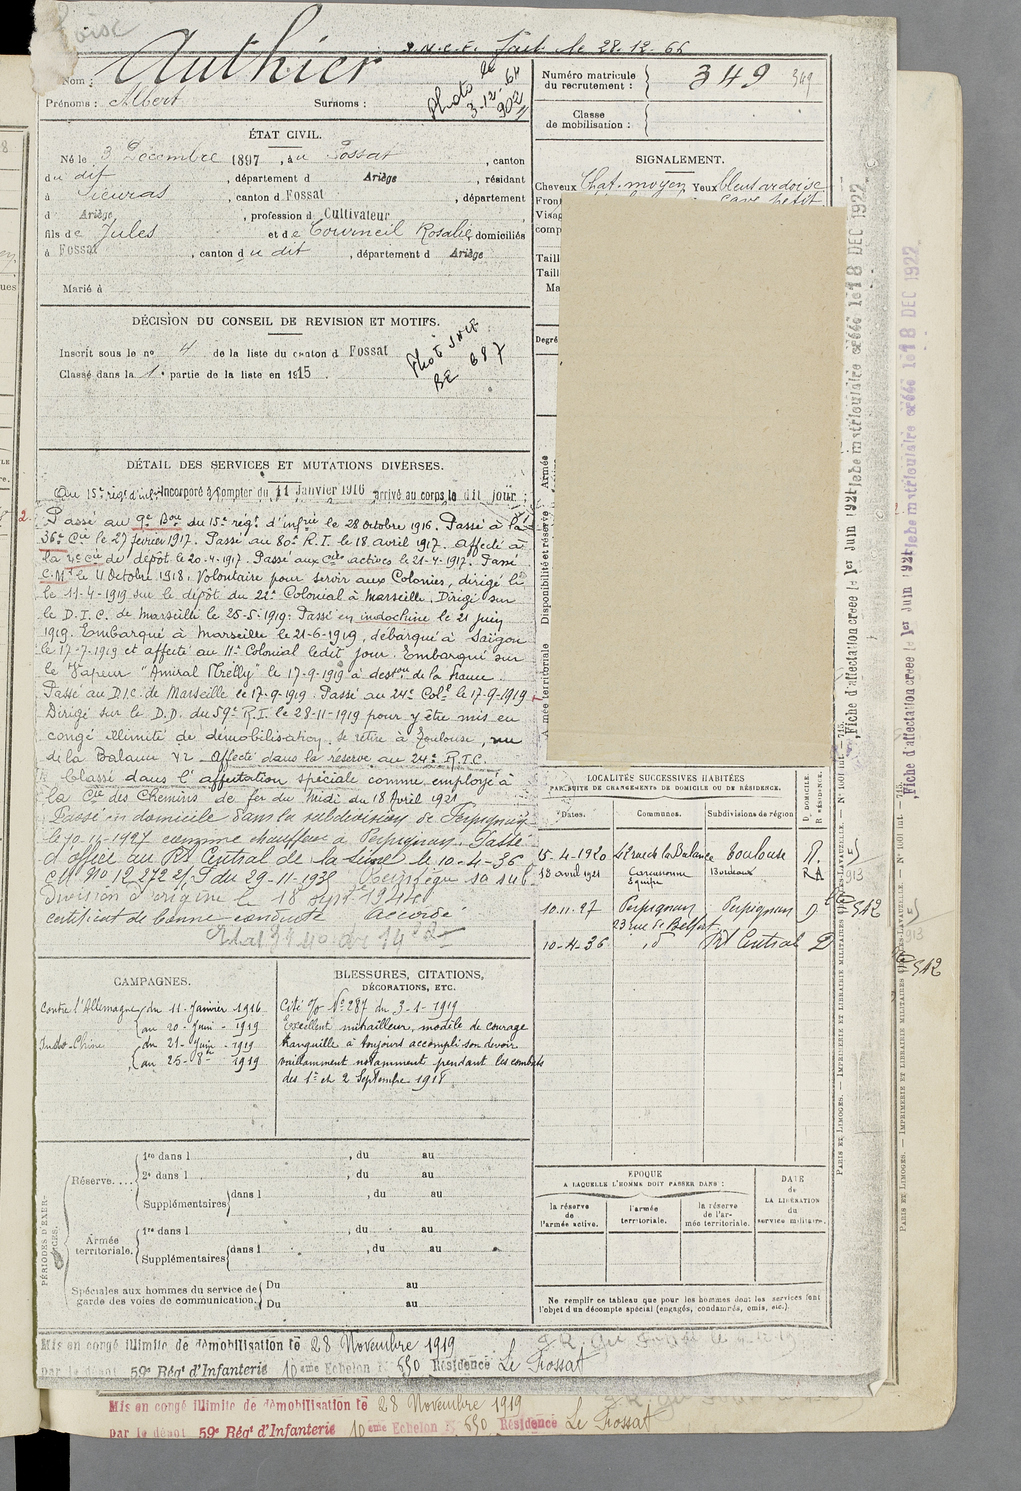 S.N.C.F. fait le 28-12-66
Nom : Authier
Prénoms : Albert Surnoms :
Photo le 3-12-64 902
Numéro matricule du recrutement : 349 349
Classe de mobilisation :
ÉTAT CIVIL.
Né le 3 Décembre 1897, à u Fossat, canton
du dit, département d Ariège, résidant
à Sieuras, canton d Fossat, département
d Ariège, profession d Cultivateur
fils de Jules et de Tourneil Rosalie, domiciliés
à Fossat, canton d u dit, département d Ariège
Marié à
SIGNALEMENT.
Cheveux Chat. moyen Yeux bleus ardoise
Fron cave petit
Visag
comp
Taill
Taill
Ma
Degré
DÉCISION DU CONSEIL DE REVISION ET MOTIFS.
Inscrit sous le no 4 de la liste du canton d Fossat
Classé dans la 1e partie de la liste en 1915
Photo SNCF
BE 687
DÉTAIL DES SERVICES ET MUTATIONS DIVERSES.
Au 15e régt d'inf. Incorporé à compter du 11 Janvier 1916 arrivé au corps le dit jour ;
Passé au 9e Bon du 15e régt d'infrie le 28 octobre 1916. Passé à la
36e Cie le 27 février 1917. Passé au 80e R.I. le 18 avril 1917. Affecté à
la 4e Cie de dépôt le 20-4-1917. Passé aux Cies actives le 21-4-1917. Passé
C.M. le 4 Octobre 1918. Volontaire pour servir aux Colonies, dirigé le
le 11-4-1919 sur le dépôt du 22e Colonial à Marseille. Dirigé sur
le D.I.C. de Marseille le 25-5-1919. Passé en indochine le 21 juin
1919. Embarqué à Marseille le 21-6-1919, débarqué à Saïgon
le 17-7-1919 et affecté au 11e Colonial ledit jour. Embarqué sur
le Vapeur "Amiral " le 17-9-1919 à deston de la France.
Passé au D.I.C. de Marseille le 17-9-1919. Passé au 24e Colal le 17-9-1919
Dirigé sur le D.D. du 59e R.I. le 28-11-1919 pour y être mis en
congé illimité de démobilisation, se retire à Toulouse, rue
de la Balance 42. Affecté dans la réserve au 24e R.I.C.
Classé dans l'affectation spéciale comme employé à
la Cie des Chemins de fer du Midi du 18 Avril 1921
Passé en domicile dans la subdivision de Perpignan
le 10-11-1927 comme chauffeur à Perpignan. Passé
d'office au Rt Central de la Seine le 10-4-36
du 29-11-1938 Réintègre sa sub
division d'origine le 18 1940
certificat de bonne conduite Accordé
CAMPAGNES.
Contre l'Allemagne du 11 Janvier 1916
au 20 Juin 1919
Indo-Chine du 21 Juin 1919
au 25 8bre 1919
BLESSURES, CITATIONS,
DÉCORATIONS, ETC.
Cité No 287 du 3-1-1919
"Excellent mitrailleur, modèle de courage
tranquille a toujours accompli son devoir
vaillamment notamment pendant les combats
des 1er et 2 Septembre 1918
Disponibilité et réserve Armée
Armée territoriale
LOCALITÉS SUCCESSIVES HABITÉES
PAR SUITE DE CHANGEMENTS DE DOMICILE OU DE RÉSIDENCE.
Dates. Communes. Subdivisions de région D. DOMICILE. R. RÉSIDENCE.
15-4-1920 42 rue de la Balance Toulouse R.
18 avril 1921 Carcassonne Équipe Bordeaux R.A
10.11.27 Perpignan Perpignan D
23 rue de Belfort
10-4-36 d° Rt Central D
ÉPOQUE
A LAQUELLE L'HOMME DOIT PASSER DANS :
la réserve de l'armée active. l'armée territoriale. la réserve de l'armée territoriale.
DATE de LA LIBÉRATION du service militaire.
Ne remplir ce tableau que pour les hommes dont les services font
l'objet d'un décompte spécial (engagés, condamnés, omis, etc.).
PÉRIODES D'EXERCICES.
Réserve.... 1re dans l , du au
2e dans l , du au
Supplémentaires dans l , du au
Armée territoriale. 1re dans l , du au
Supplémentaires dans l , du au
Spéciales aux hommes du service de garde des voies de communication. Du au
Du au
Mis en congé illimité de démobilisation le 28 Novembre 1919
par le dépôt 59e Régt d'Infanterie 10ème Echelon N° 550 Résidence Le Fossat
Mis en congé illimité de démobilisation le 28 Novembre 1919
par le dépôt 59e Régt d'Infanterie 10ème Echelon N° 550 Résidence Le Fossat
Fiche d'affectation créée le 1er Juin 1921
Fiche matriculaire créée le 18 DEC 1922
Fiche d'affectation créée le 1er Juin 1921
Fiche matriculaire créée le 18 DEC 1922
PARIS ET LIMOGES. — IMPRIMERIE ET LIBRAIRIE MILITAIRES CHARLES-LAVAUZELLE. — N° 1001 int. — 715.
PARIS ET LIMOGES. — IMPRIMERIE ET LIBRAIRIE MILITAIRES CHARLES-LAVAUZELLE. — N° 1001 int. — 715.
913
542
913
542